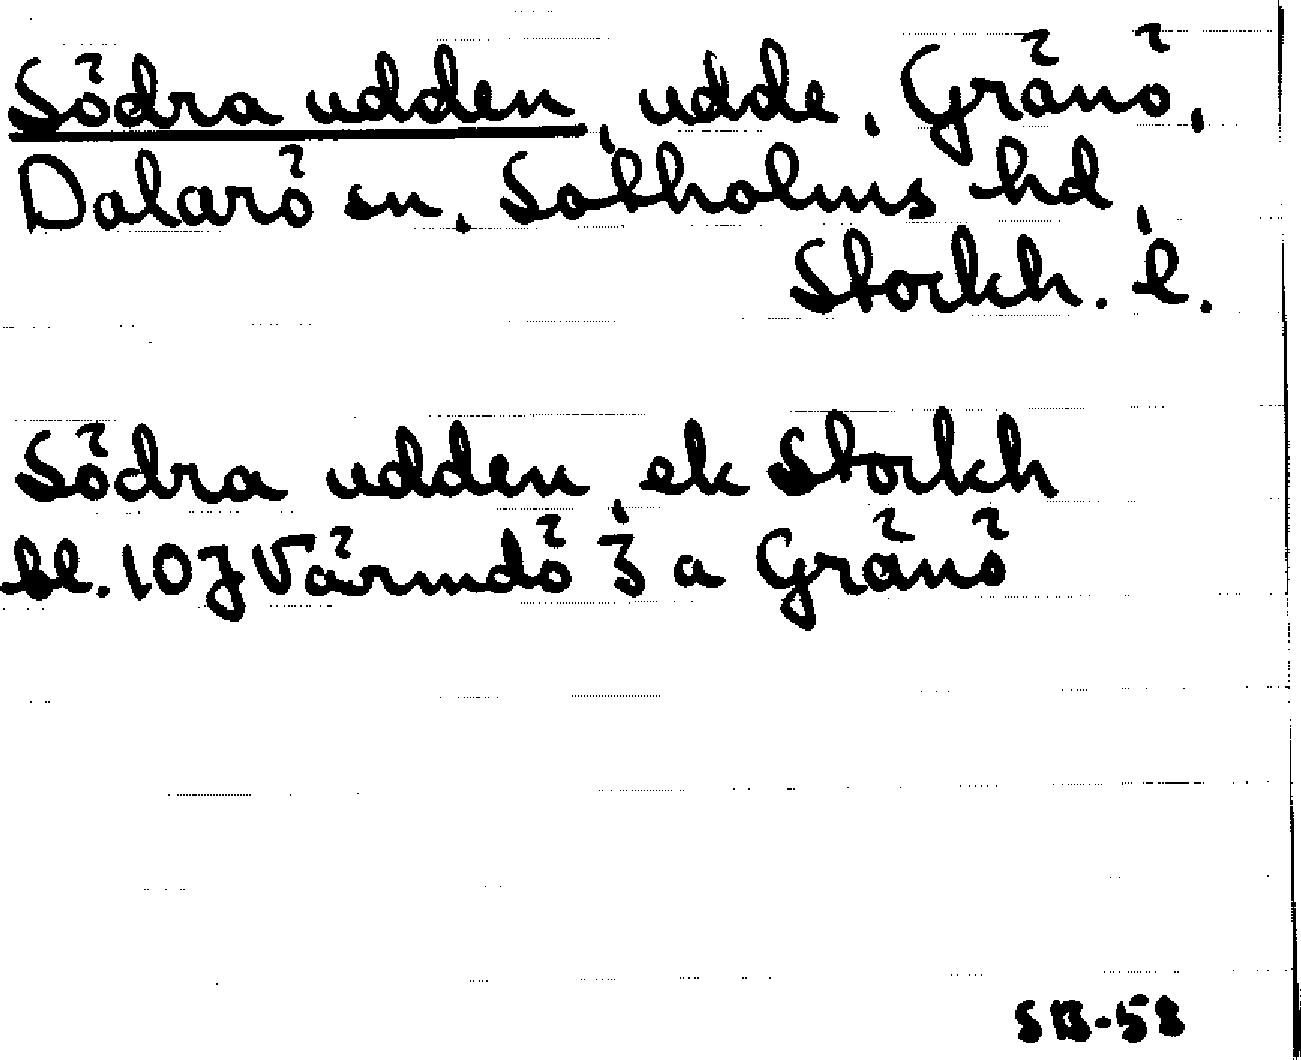 Södra udden, udde, Gränö,
Dalarö sn, Sotholms hd,
Stockh. l.
Södra udden, ek Stockh
bl. 107 Värmdö 3 a Gränö
SB-58